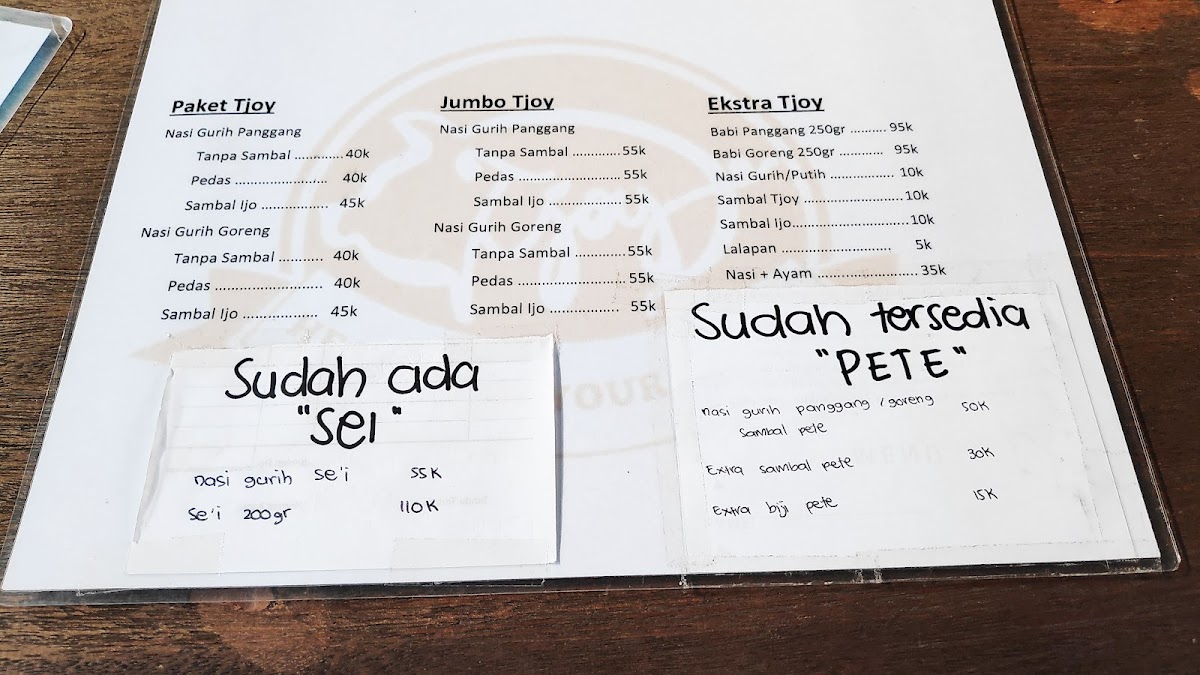 Paket Tjoy
Nasi Gurih Panggang
Tanpa Sambal ............. 40k
Pedas ........................... 40k
Sambal Ijo .................. 45k
Nasi Gurih Goreng
Tanpa Sambal ........... 40k
Pedas .......................... 40k
Sambal Ijo ................... 45k
Jumbo Tjoy
Nasi Gurih Panggang
Tanpa Sambal ............. 55k
Pedas ............................ 55k
Sambal Ijo ................... 55k
Nasi Gurih Goreng
Tanpa Sambal ............. 55k
Pedas ............................ 55k
Sambal Ijo .................. 55k
Ekstra Tjoy
Babi Panggang 250gr .......... 95k
Babi Goreng 250gr ............ 95k
Nasi Gurih/Putih .................. 10k
Sambal Tjoy ........................... 10k
Sambal Ijo................................ 10k
Lalapan ............................ 5k
Nasi + Ayam .......................... 35k
Tjoy
YOUR
MENU
Sudah ada
"SEI"
nasi gurih se'i 55K
Se'i 200gr 110K
Sudah tersedia
"PETE"
nasi gurih panggang / goreng 50K
sambal pete
Extra sambal pete 30K
Extra biji pete 15K